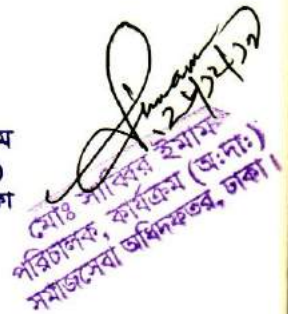 ম
)
কা
মোঃ সাব্বির ইমাম
পরিচালক, কার্যক্রম (অঃদাঃ)
সমাজসেবা অধিদফতর, ঢাকা।